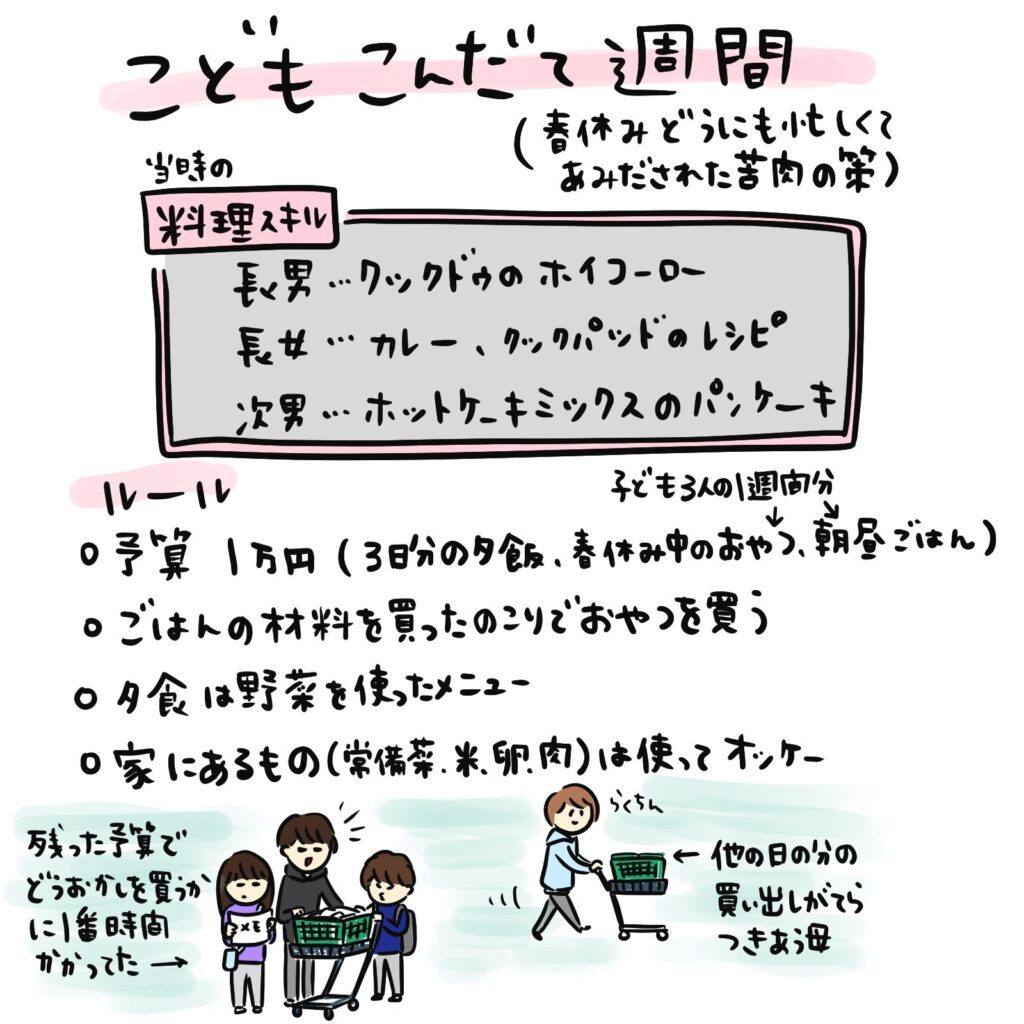 こどもこんだて週間
(春休みどうにも忙しくて
あみだされた苦肉の策)
当時の
料理スキル
長男…クックドゥのホイコーロー
長女…カレー、クックパッドのレシピ
次男…ホットケーキミックスのパンケーキ
ルール
子ども3人の1週間分
○予算 1万円(3日分の夕飯、春休み中のおやつ、朝昼ごはん)
○ごはんの材料を買ったのこりでおやつを買う
○夕食は野菜を使ったメニュー
○家にあるもの(常備菜.米.卵.肉)は使ってオッケー
残った予算で
どうおかしを買うか
に1番時間
かかってた→
メモ
らくちん
←他の日の分の
買い出しがてら
つきあう母